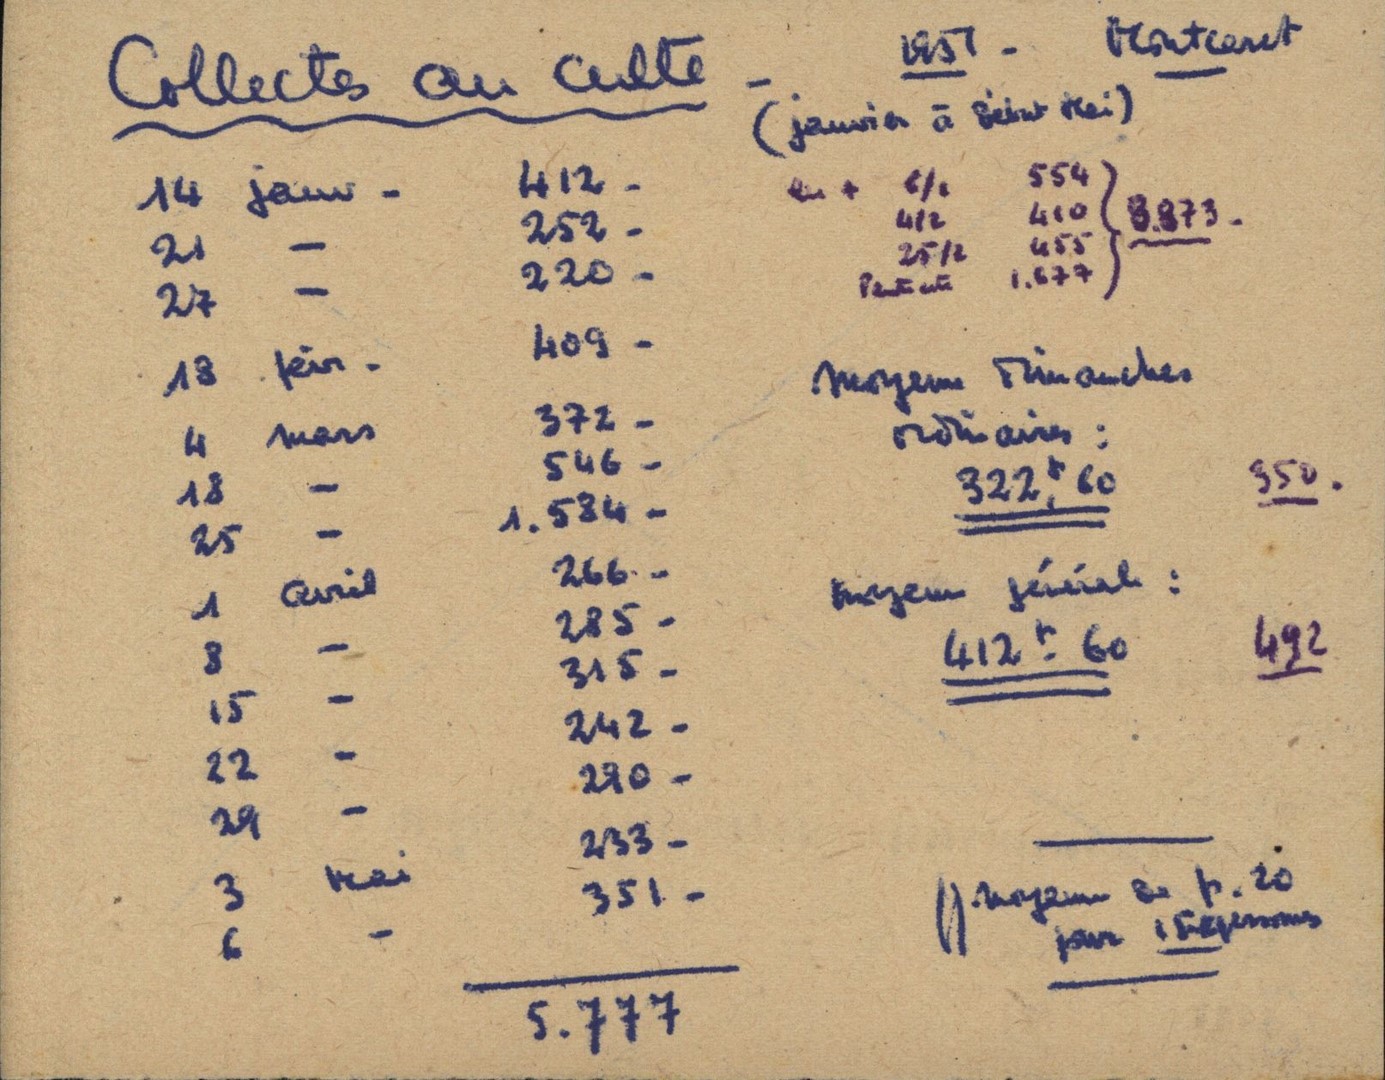 Collectes au culte - 1951 - Montcaret
(janvier à début Mai)
14 janv - 412 -
21 — 252 -
27 — 220 -
18 févr - 409 -
4 mars 372 -
18 — 546 -
25 — 1.584 -
1 avril 266 -
8 — 285 -
15 — 315 -
22 — 242 -
29 — 290 -
3 Mai 233 -
6 — 351 -
5.777
en + 6/1 554
4/2 410
25/2 455
Pentecôte 1.677
8.873 -
Moyenne Dimanches
ordinaires :
322 f. 60 350.
Moyenne générale :
412 f. 60 492
Moyenne de fr. 20
pour personnes